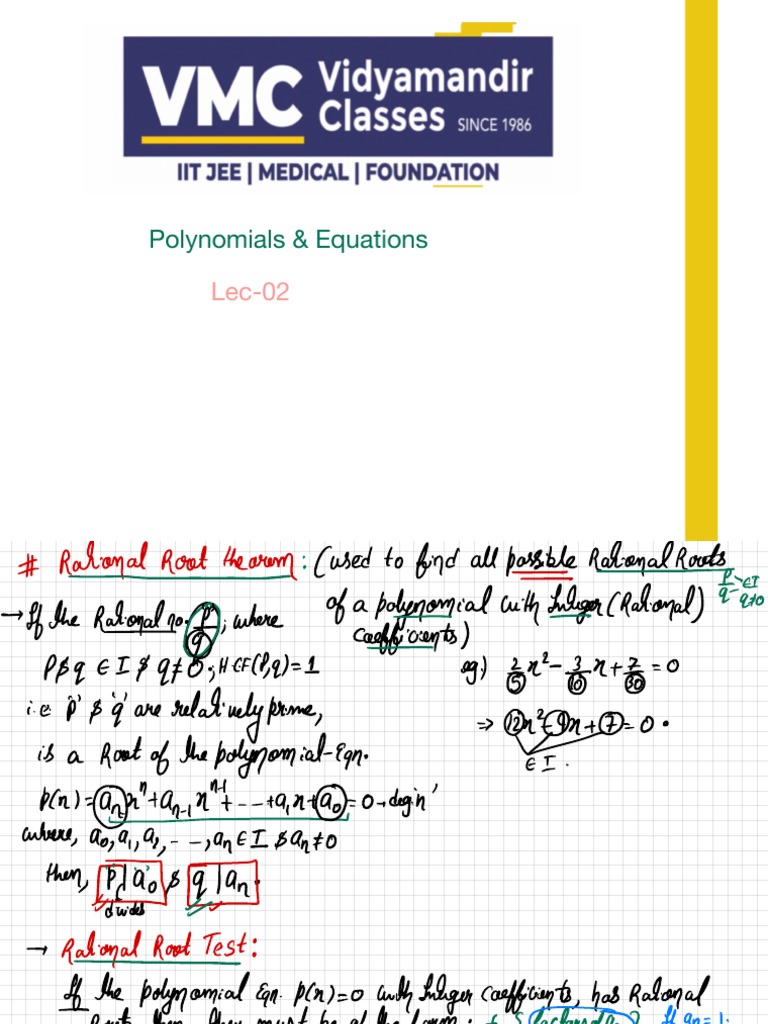 VMC Vidyamandir
Classes SINCE 1986
IIT JEE | MEDICAL | FOUNDATION
Polynomials & Equations
Lec-02
# Rational Root theorem : (used to find all possible Rational Roots
of a polynomial with Integer (Rational)
coefficients)
p/q → ∈ I
q ≠ 0
→ If the Rational no. p/q ; where
p & q ∈ I & q ≠ 0 ; HCF(p,q) = 1
i.e 'p' & 'q' are relatively prime,
is a Root of the polynomial-Eqn.
p(x) = aₙxⁿ + aₙ₋₁xⁿ⁻¹ + ... + a₁x + a₀ = 0 → deg 'n'
where, a₀, a₁, a₂, ..., aₙ ∈ I & aₙ ≠ 0
then, p | a₀ & q | aₙ.
divides
eg) 2/5 x² - 3/10 x + 7/30 = 0
⇒ 12x² - 9x + 7 = 0 .
∈ I .
→ Rational Root Test :
If the polynomial Eqn. p(x) = 0 with Integer coefficients, has Rational
Roots then they must be of the form : ± { factors of a₀ } If aₙ = 1 ;